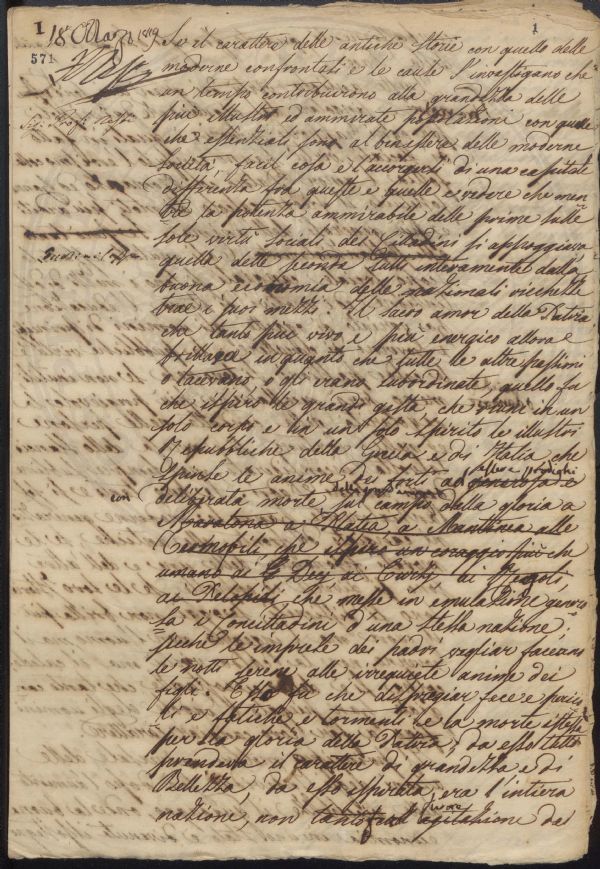 1
1
18 Marzo 1819
571
Se il carattere delle antiche storie con quello delle
moderne confrontasi e le cause s'investigano che
un tempo contribuirono alla grandezza delle
più illustri ed ammirate popolazioni con quelle
che essenziali sono al benessere delle moderne
società, facil cosa è l'accorgersi di una capitale
differenza fra queste e quelle e vedere che men
tre la potenza ammirabile delle prime sulle
sole virtù sociali dei Cittadini si appoggiava,
quella delle seconde tutti interamente dalla
buona economia delle nazionali ricchezze
trae i suoi mezzi. Il sacro amor della Patria
che tanto più vivo e più energico allora è
in quanto che tutte le altre passioni
o tacevano, o gli erano subordinate, quello fu
che ispirò le grandi gesta, che unì in un
solo corpo e in un solo spirito le illustri
Repubbliche della Grecia e di Italia che
spinse le anime dei forti ad essere prodighi generosa e
con deliberata morte sul campo della gloria a
Maratona a Platea a Mantinea alle
Termopili, che ispirò un coraggio più che
umano ai Decj ai Curzj ai Regoli,
ai che messe in emulazione genero
sa i Concittadini d'una stessa nazione,
perché le imprese dei padri vegliar facevano
le notti serene alle irrequiete anime dei
figli. Esso fu che dispregiar fece e perico
li e fatiche e tormenti e la morte istessa
per la gloria della Patria; da esso tutto
prendeva il carattere di grandezza e di
Bellezza, da esso ispirata era l'intiera
nazione, non tanto agitazione dei